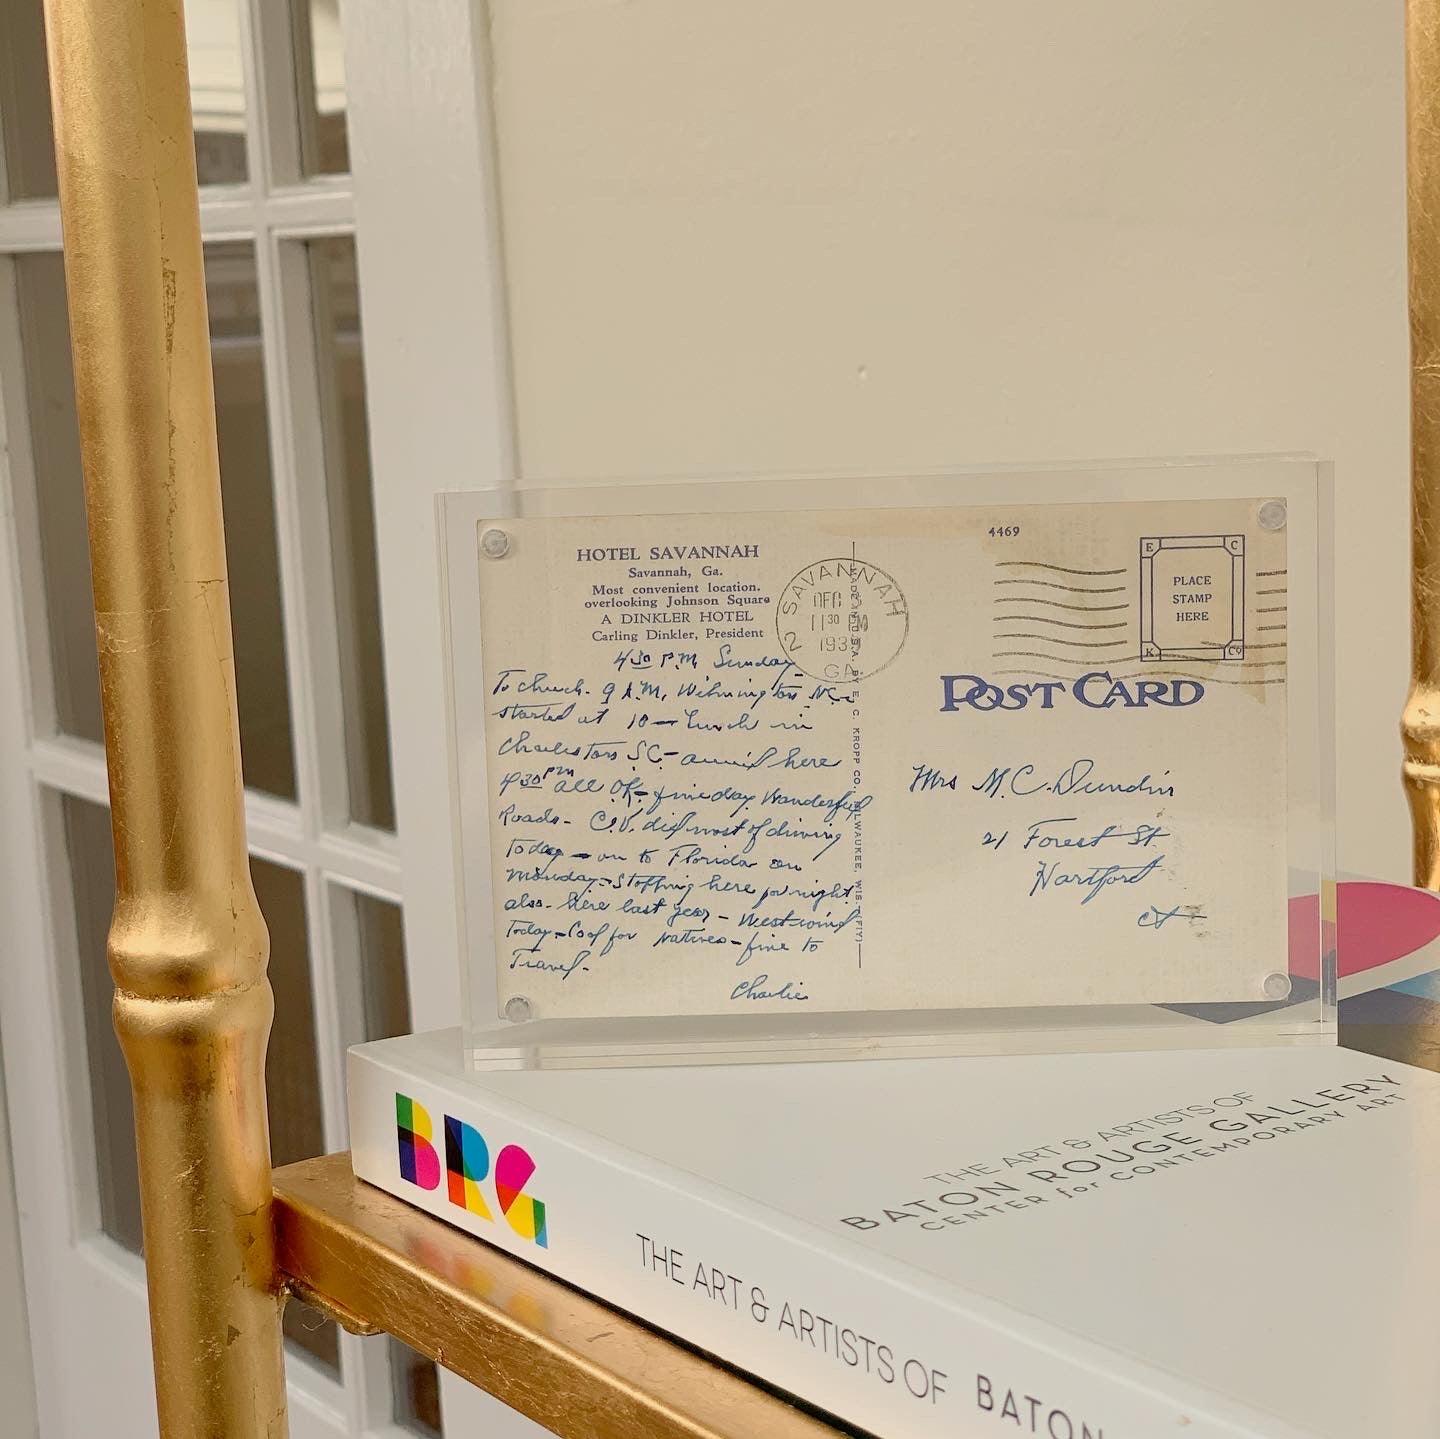 HOTEL SAVANNAH
Savannah, Ga.
Most convenient location.
overlooking Johnson Square
A DINKLER HOTEL
Carling Dinkler, President
4 30 P.M. Sunday
To church. 9 A.M. Wilmington N.C.
started at 10 — Lunch in
Charleston S.C. — here
4 30 PM all OK — fine day. Wonderful
Roads - C.V. did most of driving
today — on to Florida on
Monday - Stopping here for night
also - here last year - West wind
Today - Cool for Natives - fine to
Travel -
Charlie
SAVANNAH
2
11 30 M
193
GA
MADE IN U.S.A. BY E. C. KROPP CO., MILWAUKEE, WIS.
4469
E C
PLACE
STAMP
HERE
K Co
POST CARD
Mrs M.C. Dundin
21 Forest St.
Hartford
Ct
BRG
THE ART & ARTISTS OF BATON
THE ART & ARTISTS OF
BATON ROUGE GALLERY
CENTER for CONTEMPORARY ART